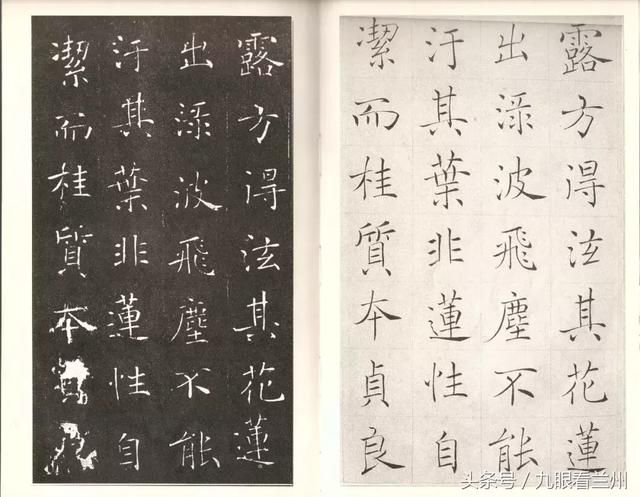 露方得泫其花蓮
出淥波飛塵不能
汙其葉非蓮性自
潔而桂質本貞良
露方得泫其花蓮
出淥波飛塵不能
汙其葉非蓮性自
潔而桂質本
头条号 / 九眼看兰州